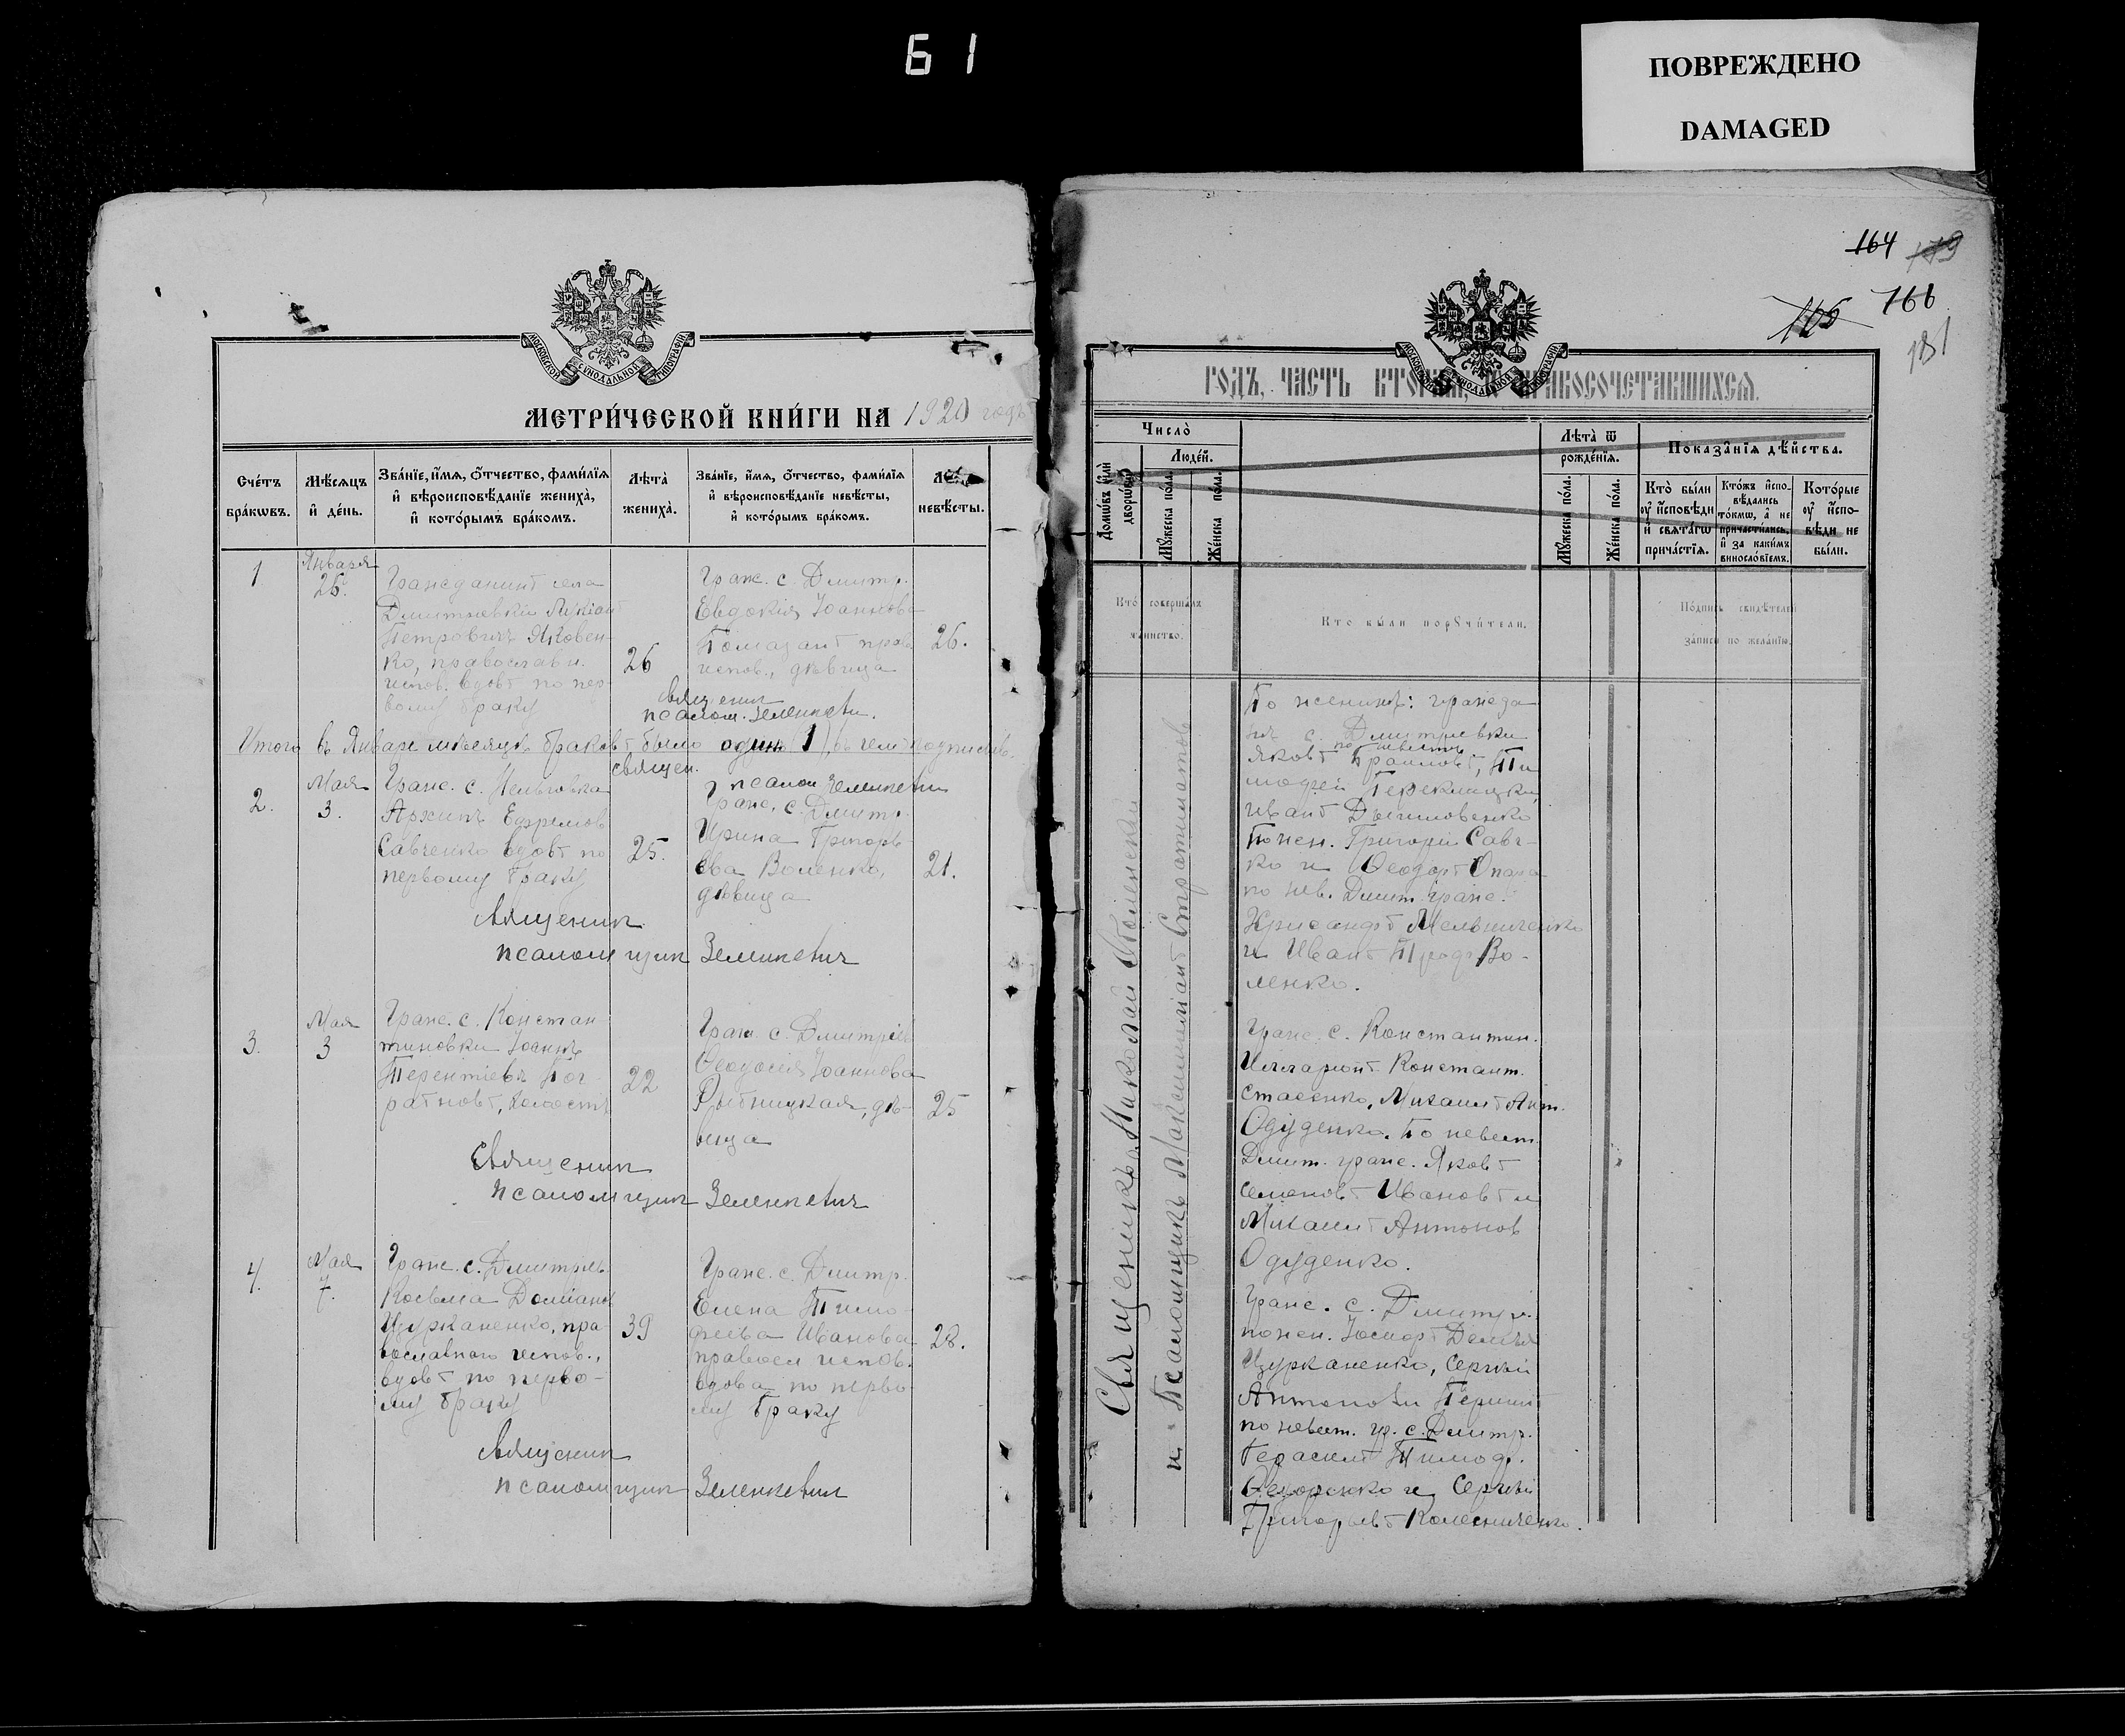 61
ПОВРЕЖДЕНО
DAMAGED
МОСКОВСКОЙ СѴНОДАЛЬНОЙ ТИПОГРАФІИ
МЕТРИ́ЧЕСКОЙ КНИ́ГИ НА 1920 годъ
Сче́тъ бра́кωвъ.
Мѣ́сяцъ и҆ де́нь.
Зва́нїе, и҆́мѧ, ѻ҆́тчество, фами́лїѧ
и҆ вѣроисповѣ́данїе жениха̀,
и҆ кото́рымъ бра́комъ.
Лѣта̀ жениха̀.
Зва́нїе, и҆́мѧ, ѻ҆́тчество, фами́лїѧ
и҆ вѣроисповѣ́данїе невѣ́сты,
и҆ кото́рымъ бра́комъ.
невѣ́сты.
1
Января
26.
Гражданинъ села
Дмитриевки Лукіанъ
Петровичъ Яковен-
ко, православн.
испов. вдовъ по пер-
вому браку
26
Граж. с. Дмитр.
Евдокія Іоаннова
испов., дѣвица
26.
священик
псалом. Зеленкевич.
Итого въ Январе месяцѣ браковъ было один (1), въ чем подписалис.
священ.
псалом Зеленкевич
2.
Мая
3.
Граж. с.
Архипъ Ефремов
Савченко вдовъ по
первому браку
25.
Граж. с. Дмитр.
Ирина Григорь-
ева Воленко,
дѣвица
21.
священик
псаломщик Зеленкевич
3.
Мая
3
Граж. с. Констан-
тиновки Іоаннъ
Терентіевъ
холостъ
22
Граж. с. Дмитріев
Ѳеодосія Іоаннова
Рыбницкая, дѣ-
вица
25
Священик
псаломщик Зеленкевич
4.
Мая
7.
Граж. с. Дмитріев.
Косьма Доміанов
Цурканенко, пра-
вославнаго испов.,
вдовъ по перво-
му браку
39
Граж. с. Дмитр.
Елена Тимо-
феева Иванова
правосл испов.
вдова по перво
му браку
28.
священик
псаломщик Зеленкевич
164
179
165
166
181
МОСКОВСКОЙ СѴНОДАЛЬНОЙ ТИПОГРАФІИ
ГОДЪ, ЧАСТЬ ВТОРАЯ, БРАКОСОЧЕТАВШИХСЯ.
Число̀
Домѡ́въ и҆лѝ дворѡ́въ
Люде́й.
Мꙋ́жеска по́ла.
Же́нска по́ла.
Лѣта̀ ѿ рожде́нїѧ.
Мꙋ́жеска по́ла.
Же́нска по́ла.
Показа̑нїѧ дѣ́йства.
Кто̀ бы́ли
ᲂу҆ и҆́сповѣди
и҆ свѧта́гѡ
прича́стїѧ.
Кто́жъ и҆спо-
вѣ́дались
то́кмѡ, а҆ не
причасти́лись,
и҆ за каки́мъ
виносло́вїемъ.
Кото́рые
ᲂу҆ и҆́спо-
вѣди не
бы́ли.
Кто̀ соверша́лъ та́инство.
Кто̀ бы́ли порꙋчи́тели.
По́дпись свидѣ́телей за́писи по жела́нїю.
Священикъ Николай Оболенский
и Псаломщикъ Максимилианъ Стратилатов
По жениху: гражда
не с. Дмитриевки
по невесте
ивант Дычиловенко
по жен. Григорій Савч-
ко и Ѳеодоръ Опаха
по нев. Дмит. граж.
Хрисанфъ Мельниченко
и Иванъ Трофъ Во-
ленко.
Граж. с. Константин.
Илларионъ Констант.
Стасенко, Михаилъ Ант.
Одуденко. По невест.
Дмит. граж. Яковъ
Семеновъ Ивановъ и
Михаилъ Антонов
Одуденко.
Граж. с. Дмитр.
по жен. Іосифъ Демья
Цурканенко, Сергѣй
по невест. гр. с. Дмитр.
Герасимъ Тимоф.
Ѳедоренко и Сергѣй
Григорьевъ Колесниченко.